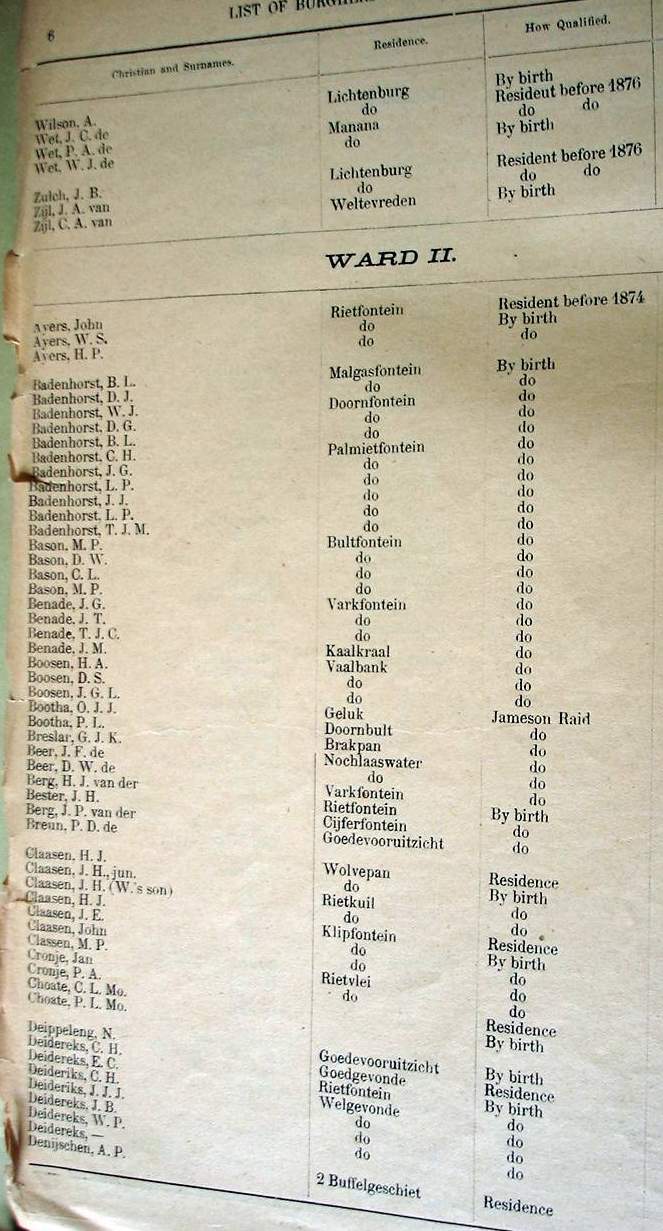 6 LIST OF BURGHERS
Christian and Surnames. Residence. How Qualified.
Wilson, A. Lichtenburg By birth
Wet, J. C. de do Resideut before 1876
Wet, P. A. de Manana do do
Wet, W. J. de do By birth
Zulch, J. B. Lichtenburg Resident before 1876
Zijl, J. A. van do do do
Zijl, C. A. van Weltevreden By birth
WARD II.
Ayers, John Rietfontein Resident before 1874
Ayers, W. S. do By birth
Ayers, H. P. do do
Badenhorst, B. L. Malgasfontein By birth
Badenhorst, D. J. do do
Badenhorst, W. J. Doornfontein do
Badenhorst, D. G. do do
Badenhorst, B. L. do do
Badenhorst, C. H. Palmietfontein do
Badenhorst, J. G. do do
Badenhorst, L. P. do do
Badenhorst, J. J. do do
Badenhorst, L. P. do do
Badenhorst, T. J. M. do do
Bason, M. P. Bultfontein do
Bason, D. W. do do
Bason, C. L. do do
Bason, M. P. do do
Benade, J. G. Varkfontein do
Benade, J. T. do do
Benade, T. J. C. do do
Benade, J. M. Kaalkraal do
Boosen, H. A. Vaalbank do
Boosen, D. S. do do
Boosen, J. G. L. do do
Bootha, O. J. J. Geluk Jameson Raid
Bootha, P. L. Doornbult do
Breslar, G. J. K. Brakpan do
Beer, J. F. de Nochlaaswater do
Beer, D. W. de do do
Berg, H. J. van der Varkfontein do
Bester, J. H. Rietfontein By birth
Berg, J. P. van der Cijferfontein do
Breun, P. D. de Goedevooruitzicht do
Claasen, H. J. Wolvepan Residence
Claasen, J. H., jun. do By birth
Claasen, J. H. (W.'s son) Rietkuil do
Claasen, H. J. do do
Claasen, J. E. Klipfontein Residence
Claasen, John do By birth
Classen, M. P. do do
Cronje, Jan Rietvlei do
Cronje, P. A. do do
Choate, C. L. Mo. Residence
Choate, P. L. Mo. By birth
Deippeleng, N. Goedevooruitzicht By birth
Deidereks, C. H. Goedgevonde Residence
Deidereks, E. C. Rietfontein By birth
Deideriks, C. H. Welgevonde do
Deideriks, J. J. J. do do
Deidereks, J. B. do do
Deidereks, W. P. do do
Deidereks, —
Denijschen, A. P. 2 Buffelgeschiet Residence